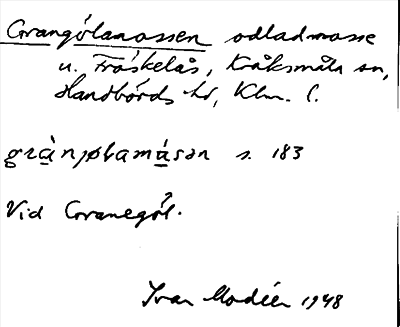 Grangölamossen odladmosse
u. Fröskelås, Kråksmåla sn,
Handbörds hd, Klm. l.
grànjølamåsən s. 183
Vid Granegöl.
Ivar Modéer 1948